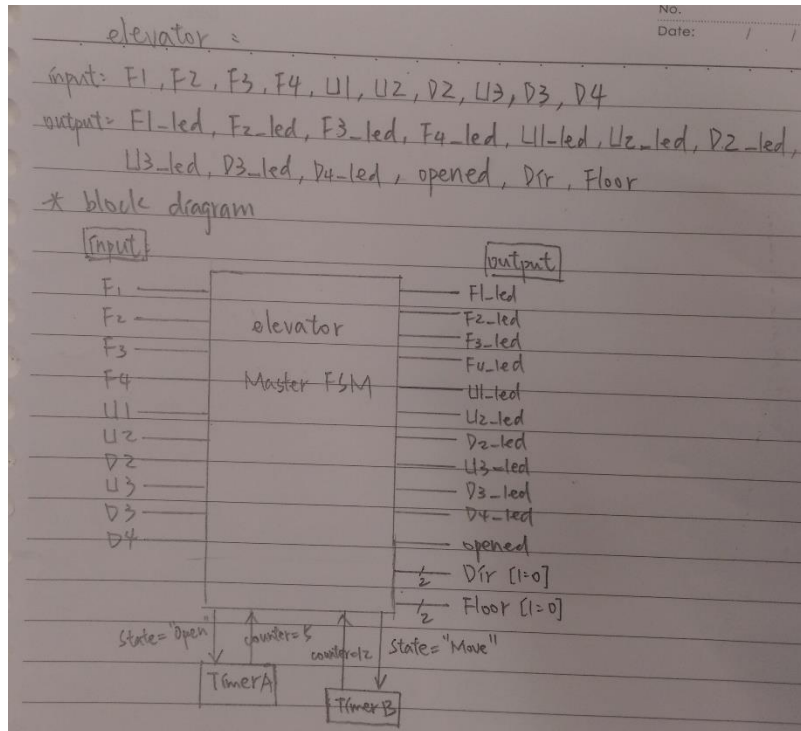 No.
Date: / /
elevator :
input: F1, F2, F3, F4, U1, U2, D2, U3, D3, D4
output: F1_led, F2_led, F3_led, F4_led, U1_led, U2_led, D2_led,
U3_led, D3_led, D4_led, opened, Dir, Floor
* block diagram
input
output
F1
F2
F3
F4
U1
U2
D2
U3
D3
D4
elevator
Master FSM
F1_led
F2_led
F3_led
F4_led
U1_led
U2_led
D2_led
U3_led
D3_led
D4_led
opened
2 Dir [1:0]
2 Floor [1:0]
State="Open"
counter=5
counter=12
State="Move"
TimerA
TimerB